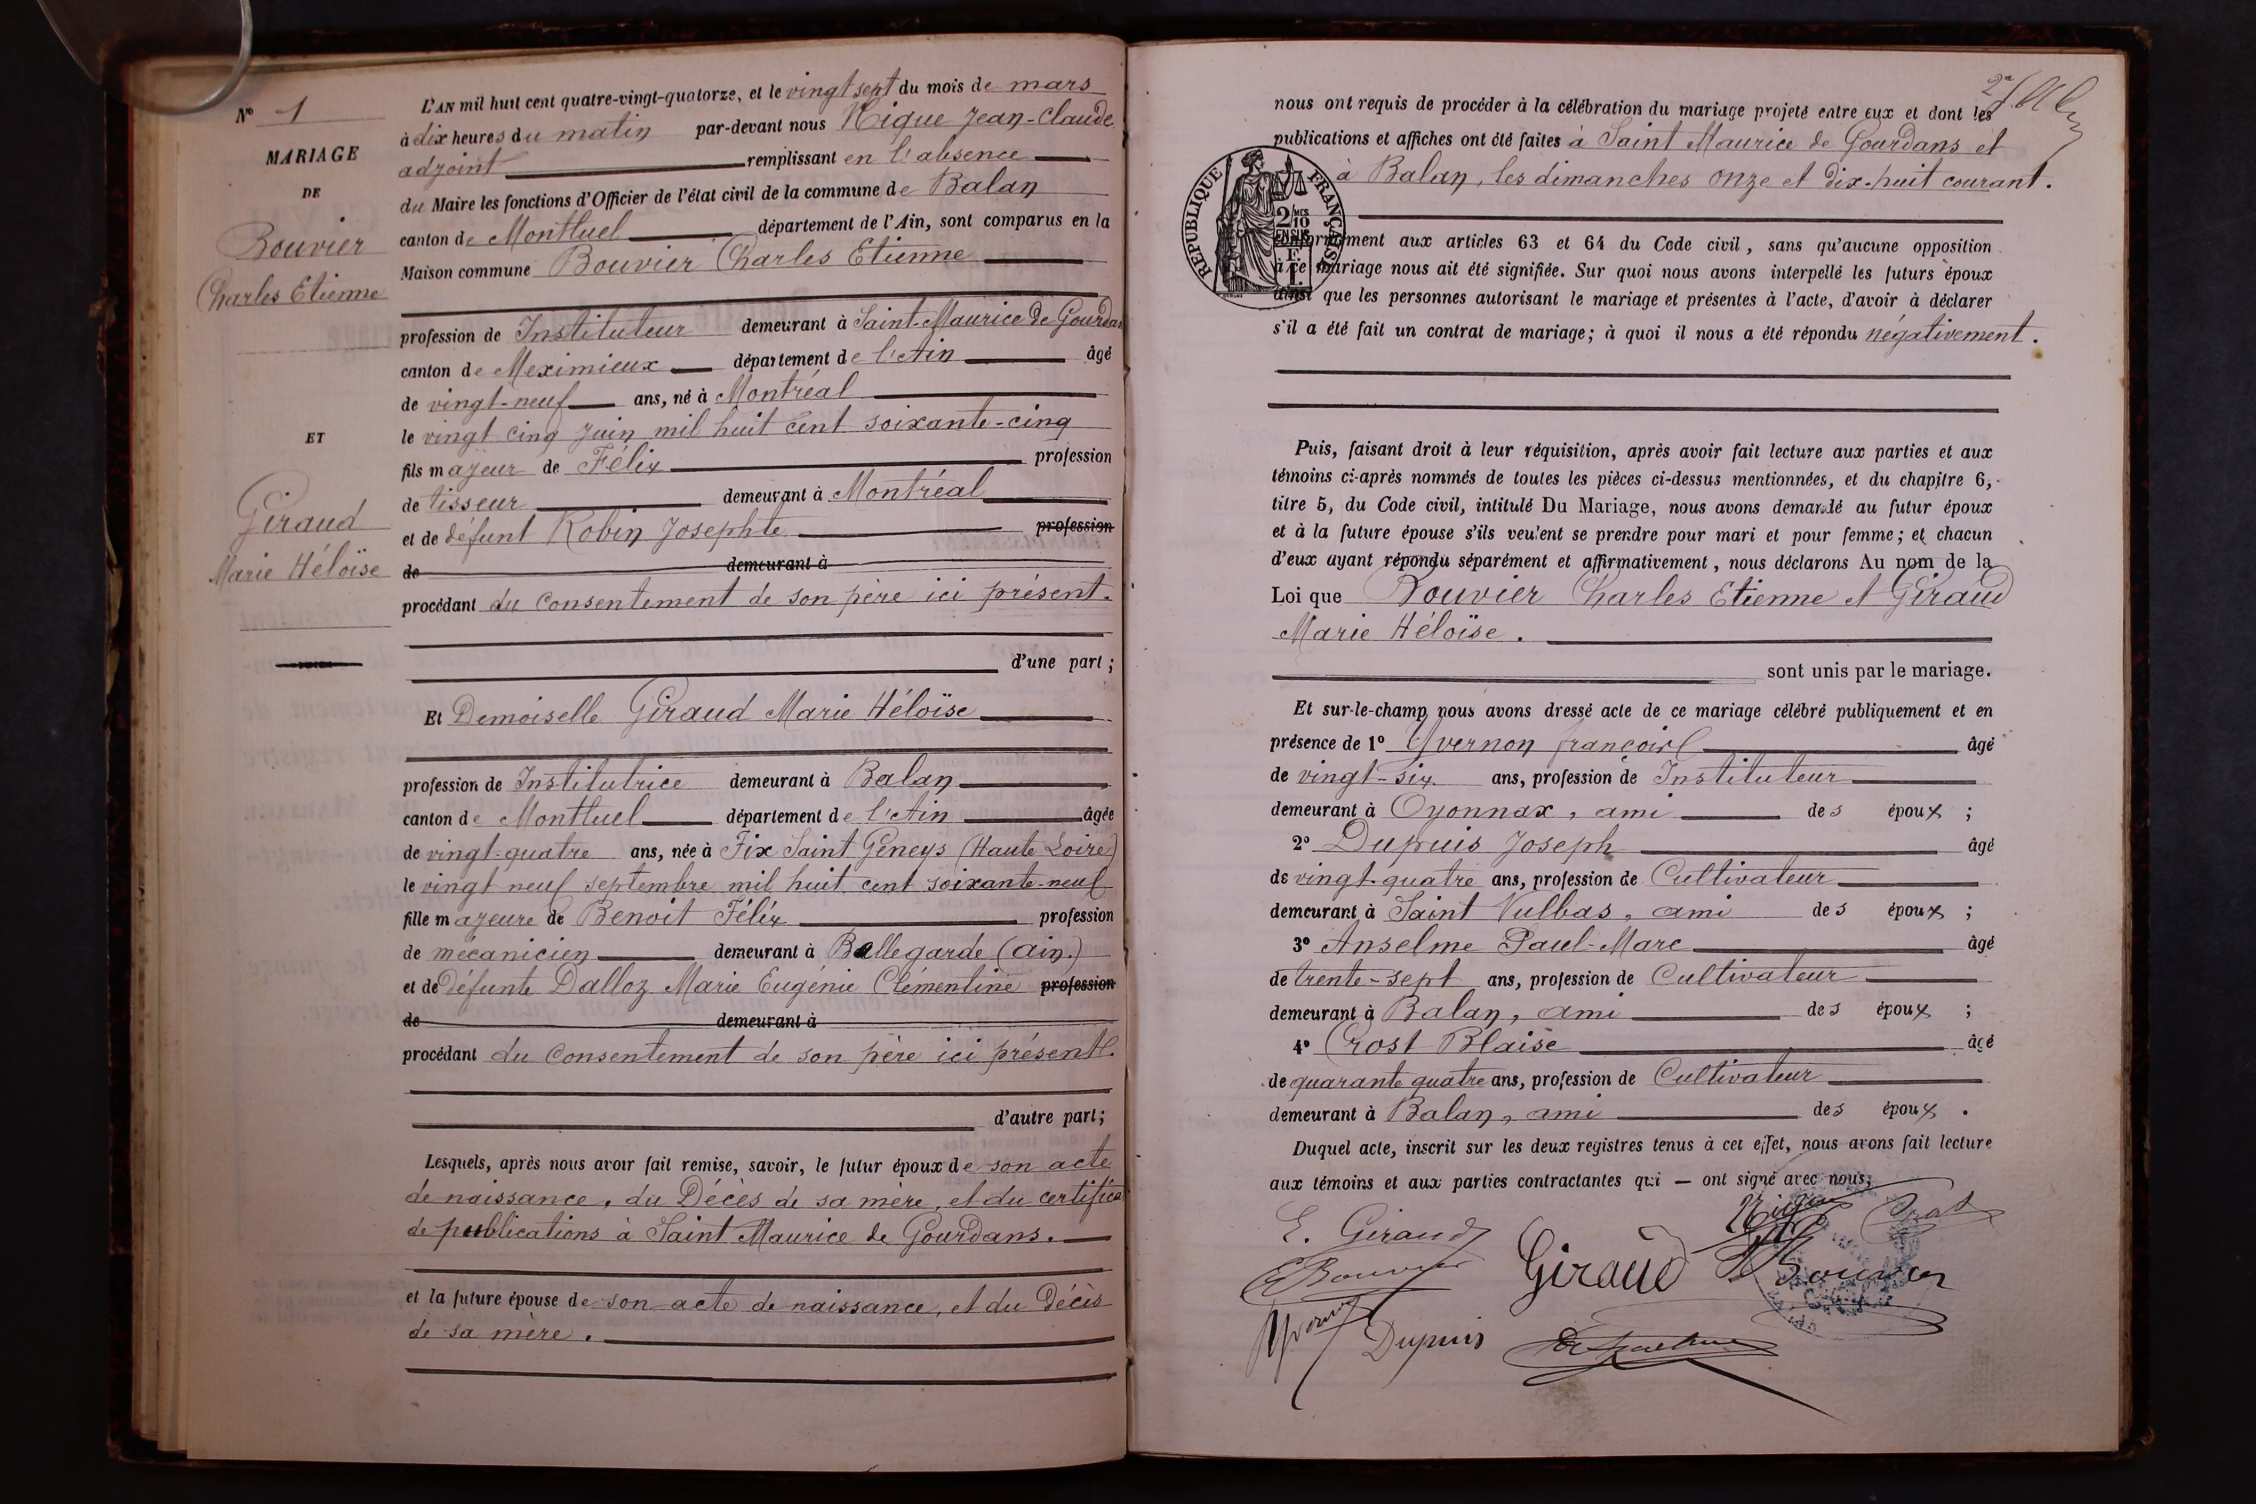 N° 1
MARIAGE
DE
Bouvier
Charles Etienne
ET
Giraud
Marie Héloïse
L'AN mil huit cent quatre-vingt-quatorze, et le vingt sept du mois de mars
à dix heures du matin par-devant nous Nique Jean-Claude
adjoint remplissant en l'absence
du Maire les fonctions d'Officier de l'état civil de la commune de Balan
canton de Montluel département de l'Ain, sont comparus en la
Maison commune Bouvier Charles Etienne
profession de Instituteur demeurant à Saint-Maurice de Gourdans
canton de Meximieux département de l'Ain âgé
de vingt-neuf ans, né à Montréal
le vingt cinq juin mil huit cent soixante-cinq
fils majeur de Félix profession
de tisseur demeurant à Montréal
et de défunt Robin Josephte profession
de demeurant à
procédant du consentement de son père ici présent.
d'une part;
Et Demoiselle Giraud Marie Héloïse
profession de Institutrice demeurant à Balan
canton de Montluel département de l'Ain âgée
de vingt-quatre ans, née à Fix Saint Geneys (Haute Loire)
le vingt neuf septembre mil huit cent soixante-neuf
fille majeure de Benoit Félix profession
de mécanicien demeurant à Bellegarde (Ain.)
et de défunte Dalloz Marie Eugénie Clémentine profession
de demeurant à
procédant du consentement de son père ici présent.
d'autre part;
Lesquels, après nous avoir fait remise, savoir, le futur époux de son acte
de naissance, du Décès de sa mère, et du certificat
de publications à Saint Maurice de Gourdans.
et la future épouse de son acte de naissance, et du Décès
de sa mère.
nous ont requis de procéder à la célébration du mariage projeté entre eux et dont les
publications et affiches ont été faites à Saint Maurice de Gourdans et
à Balan, les dimanches onze et dix-huit courant.
RÉPUBLIQUE FRANÇAISE
2/10
EN SUS
conformément aux articles 63 et 64 du Code civil, sans qu'aucune opposition
à ce mariage nous ait été signifiée. Sur quoi nous avons interpellé les futurs époux
ainsi que les personnes autorisant le mariage et présentes à l'acte, d'avoir à déclarer
s'il a été fait un contrat de mariage; à quoi il nous a été répondu négativement.
Puis, faisant droit à leur réquisition, après avoir fait lecture aux parties et aux
témoins ci-après nommés de toutes les pièces ci-dessus mentionnées, et du chapitre 6,
titre 5, du Code civil, intitulé Du Mariage, nous avons demandé au futur époux
et à la future épouse s'ils veulent se prendre pour mari et pour femme; et chacun
d'eux ayant répondu séparément et affirmativement, nous déclarons Au nom de la
Loi que Bouvier Charles Etienne et Giraud
Marie Héloïse.
sont unis par le mariage.
Et sur-le-champ nous avons dressé acte de ce mariage célébré publiquement et en
présence de 1° Yvernon françois âgé
de vingt-six ans, profession de Instituteur
demeurant à Oyonnax, ami des époux;
2° Dupuis Joseph âgé
de vingt-quatre ans, profession de Cultivateur
demeurant à Saint Vulbas, ami des époux;
3° Anselme Paul-Marc âgé
de trente-sept ans, profession de Cultivateur
demeurant à Balan, ami des époux;
4° Crost Blaise âgé
de quarante quatre ans, profession de Cultivateur
demeurant à Balan, ami des époux.
Duquel acte, inscrit sur les deux registres tenus à cet effet, nous avons fait lecture
aux témoins et aux parties contractantes qui — ont signé avec nous;
E. Giraud
Nique
Crost
Bouvier
Giraud
Bouvier
Yvernon
Dupuis